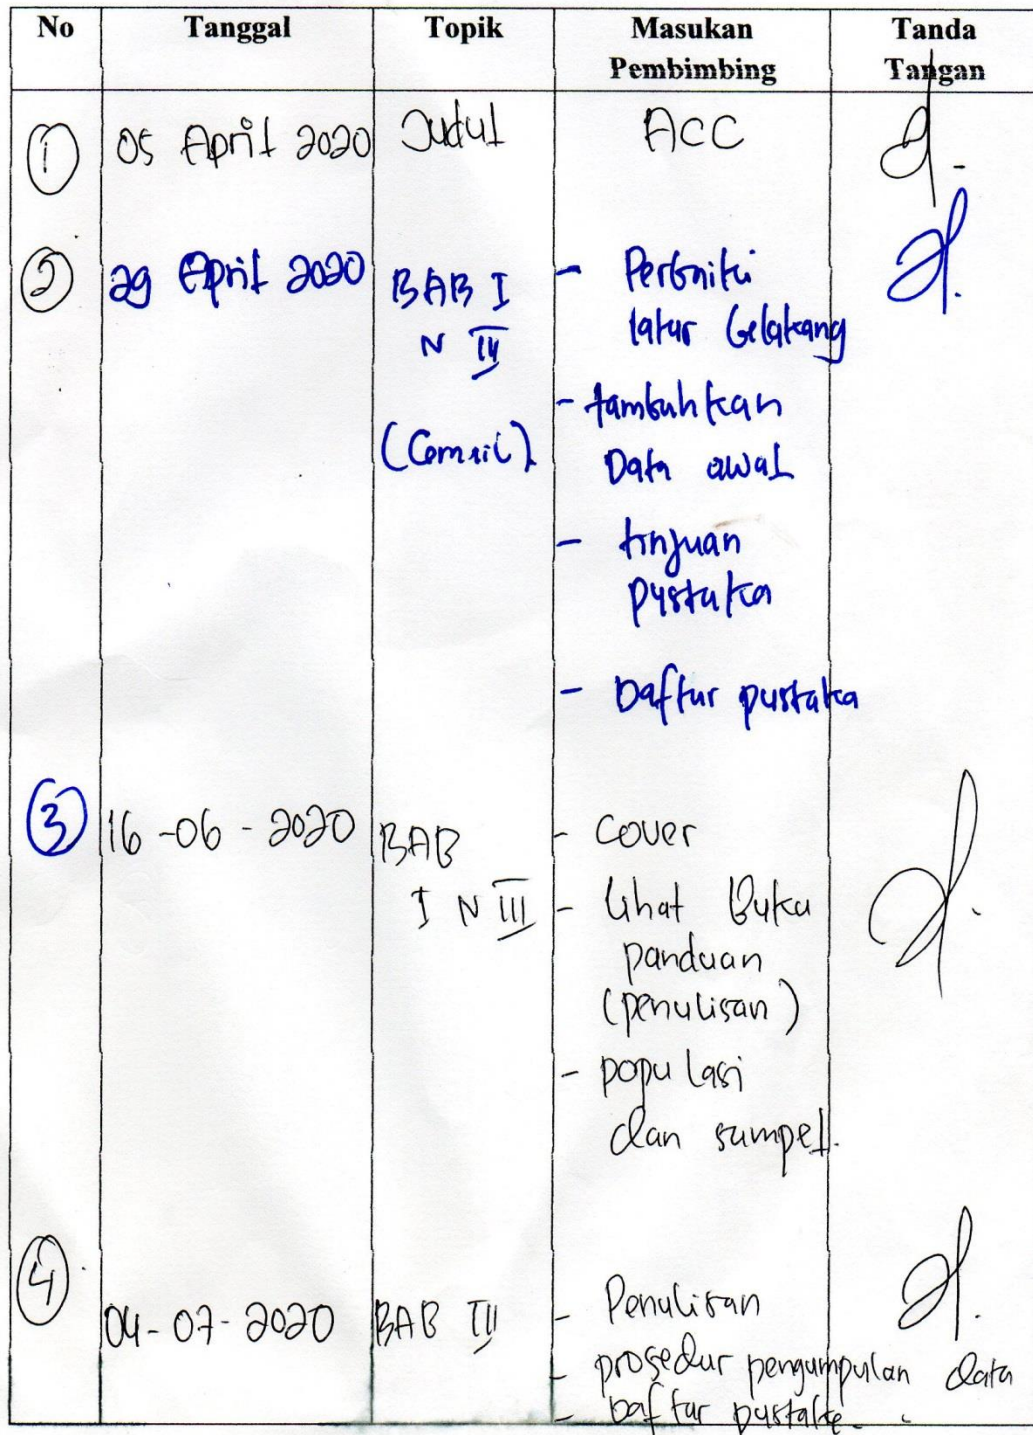 No Tanggal Topik Masukan Pembimbing Tanda Tangan
1 05 April 2020 Judul ACC
2 29 April 2020 BAB I - Perbaiki
N III latar belakang
- tambahkan
(Email) Data awal
- tinjuan
pustaka
- Daftar pustaka
3 16-06-2020 BAB - Cover
I N III - lihat Buku
panduan
(penulisan)
- populasi
dan sampel.
4 04-07-2020 BAB III - Penulisan
- prosedur pengumpulan data
- Daftar pustaka.